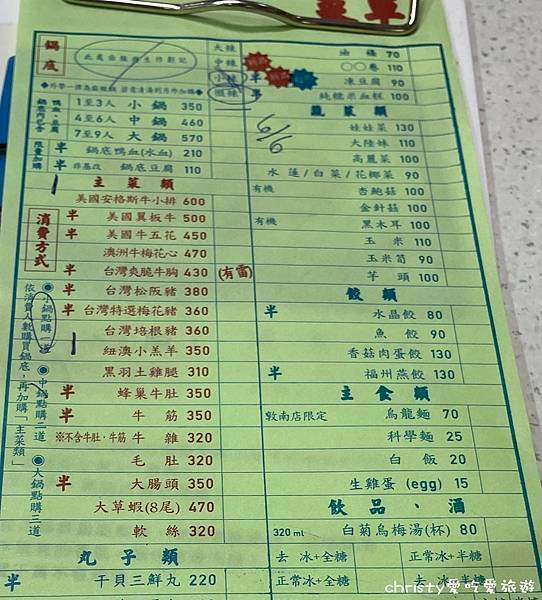 菜單
鍋底
此處由服務生作劃記
大辣
中辣
小辣
微辣
◆外帶一律為麻辣鍋
鍋底內已含
鴨血、豆腐
1至3人 小鍋 350
4至6人 中鍋 460
7至9人 大鍋 570
限量加購
半 鍋底鴨血(水血) 210
半 非基改 鍋底豆腐 110
主菜類
消費方式
◉小鍋點購一道 ◉中鍋點購二道 ◉大鍋點購三道
依消費人數購買鍋底,再加購「主菜類」
美國安格斯牛小排 600
半 美國翼板牛 500
半 美國牛五花 450
澳洲牛梅花心 470
半 台灣爽脆牛胸 430 (有雷)
半 台灣松阪豬 380
半 台灣特選梅花豬 360
台灣培根豬 360
紐澳小羔羊 350
黑羽土雞腿 310
半 蜂巢牛肚 350
半 牛筋 350
※不含牛肚‧牛筋 牛雜 320
毛肚 320
半 大腸頭 350
大草蝦(8尾) 470
軟絲 320
丸子類
半 干貝三鮮丸 220
油條 70
○○卷 110
半 凍豆腐 90
半 純糯米血糕 100
蔬菜類
6/6
娃娃菜 130
大陸妹 110
高麗菜 100
水蓮/白菜/花椰菜 90
有機 杏鮑菇 100
金針菇 100
有機 黑木耳 100
玉米 110
玉米筍 90
芋頭 100
餃類
半 水晶餃 80
魚餃 90
香菇肉蛋餃 130
半 福州燕餃 130
主食類
敦南店限定 烏龍麵 70
科學麵 25
白飯 20
生雞蛋 (egg) 15
飲品、酒
320 ml 白菊烏梅湯(杯) 80
去冰+全糖 正常冰+半糖
正常冰+全糖 去冰+半糖
christy愛吃愛旅遊